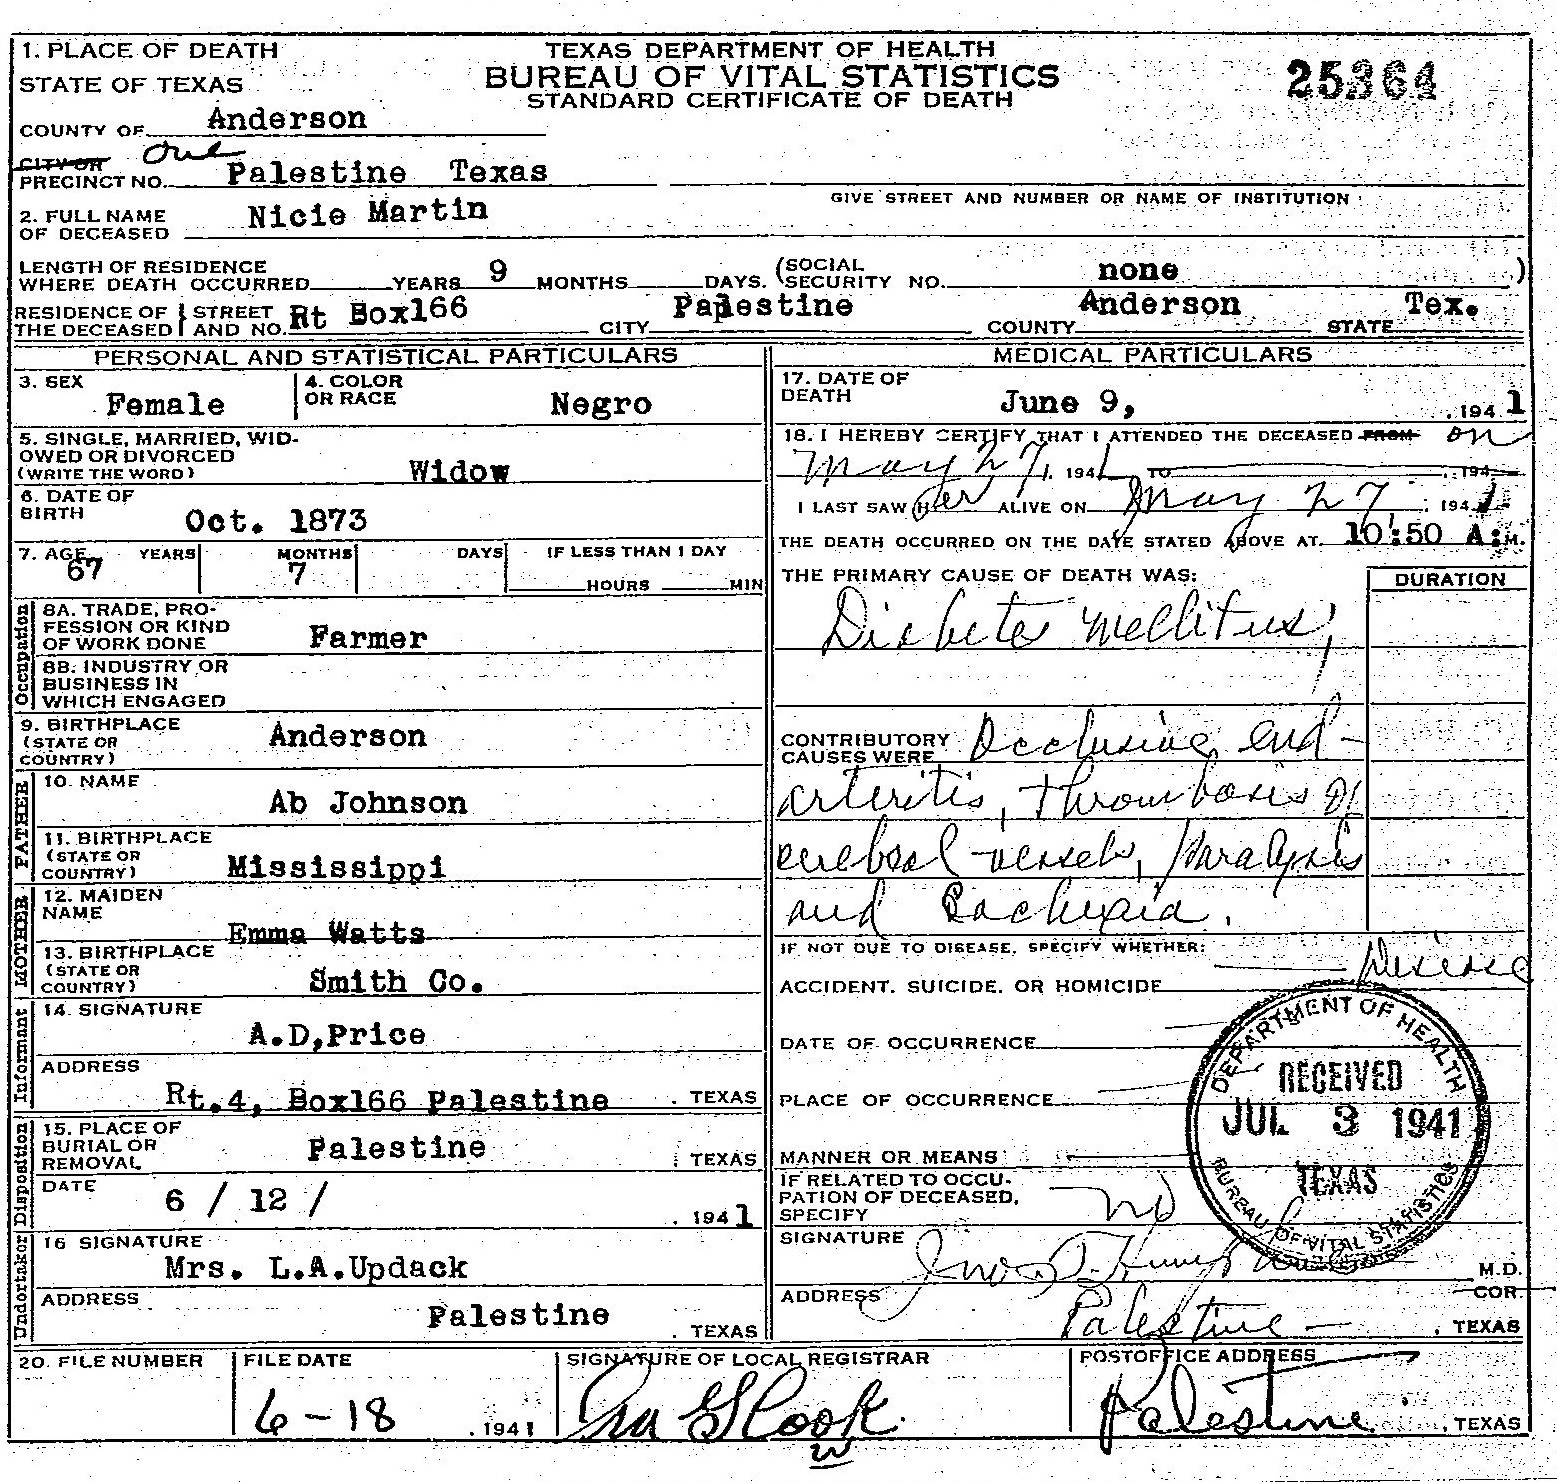 1. PLACE OF DEATH
TEXAS DEPARTMENT OF HEALTH
BUREAU OF VITAL STATISTICS
STANDARD CERTIFICATE OF DEATH
25364
STATE OF TEXAS
COUNTY OF Anderson
CITY OR one
PRECINCT NO. Palestine Texas
GIVE STREET AND NUMBER OR NAME OF INSTITUTION
2. FULL NAME
OF DECEASED Nicie Martin
LENGTH OF RESIDENCE
WHERE DEATH OCCURRED YEARS 9 MONTHS DAYS. (SOCIAL SECURITY NO. none )
RESIDENCE OF THE DECEASED STREET AND NO. Rt Box166 CITY Palestine COUNTY Anderson STATE Tex.
PERSONAL AND STATISTICAL PARTICULARS
3. SEX Female
4. COLOR OR RACE Negro
5. SINGLE, MARRIED, WID-
OWED OR DIVORCED
(WRITE THE WORD) Widow
6. DATE OF
BIRTH Oct. 1873
7. AGE 67 YEARS 7 MONTHS DAYS IF LESS THAN 1 DAY
HOURS MIN
Occupation
8A. TRADE, PRO-
FESSION OR KIND
OF WORK DONE Farmer
8B. INDUSTRY OR
BUSINESS IN
WHICH ENGAGED
9. BIRTHPLACE
(STATE OR
COUNTRY) Anderson
FATHER
10. NAME
Ab Johnson
11. BIRTHPLACE
(STATE OR
COUNTRY) Mississippi
MOTHER
12. MAIDEN
NAME
Emma Watts
13. BIRTHPLACE
(STATE OR
COUNTRY) Smith Co.
Informant
14. SIGNATURE
A.D,Price
ADDRESS
Rt.4, Box166 Palestine . TEXAS
Disposition
15. PLACE OF
BURIAL OR
REMOVAL Palestine TEXAS
DATE 6 / 12 / . 1941
Undertaker
16 SIGNATURE
Mrs. L.A.Updack
ADDRESS
Palestine . TEXAS
MEDICAL PARTICULARS
17. DATE OF
DEATH June 9, . 1941
18. I HEREBY CERTIFY THAT I ATTENDED THE DECEASED FROM on
May 27, 1941 TO , 194
I LAST SAW Her ALIVE ON May 27 , 1941
THE DEATH OCCURRED ON THE DATE STATED ABOVE AT. 10:50 A.M.
THE PRIMARY CAUSE OF DEATH WAS: DURATION
Diabetes Mellitus,
CONTRIBUTORY
CAUSES WERE Occlusive end-
arteritis, thrombosis of
cerebral vessels, Paralysis
and Cachexia.
IF NOT DUE TO DISEASE, SPECIFY WHETHER:
Disease
ACCIDENT, SUICIDE, OR HOMICIDE
DATE OF OCCURRENCE
PLACE OF OCCURRENCE
MANNER OR MEANS
IF RELATED TO OCCU-
PATION OF DECEASED,
SPECIFY no
DEPARTMENT OF HEALTH
RECEIVED
JUL 3 1941
TEXAS
BUREAU OF VITAL STATISTICS
SIGNATURE M.D.
COR
ADDRESS Palestine . TEXAS
20. FILE NUMBER
FILE DATE
6-18 . 1941
SIGNATURE OF LOCAL REGISTRAR
Cook
POSTOFFICE ADDRESS
Palestine . TEXAS